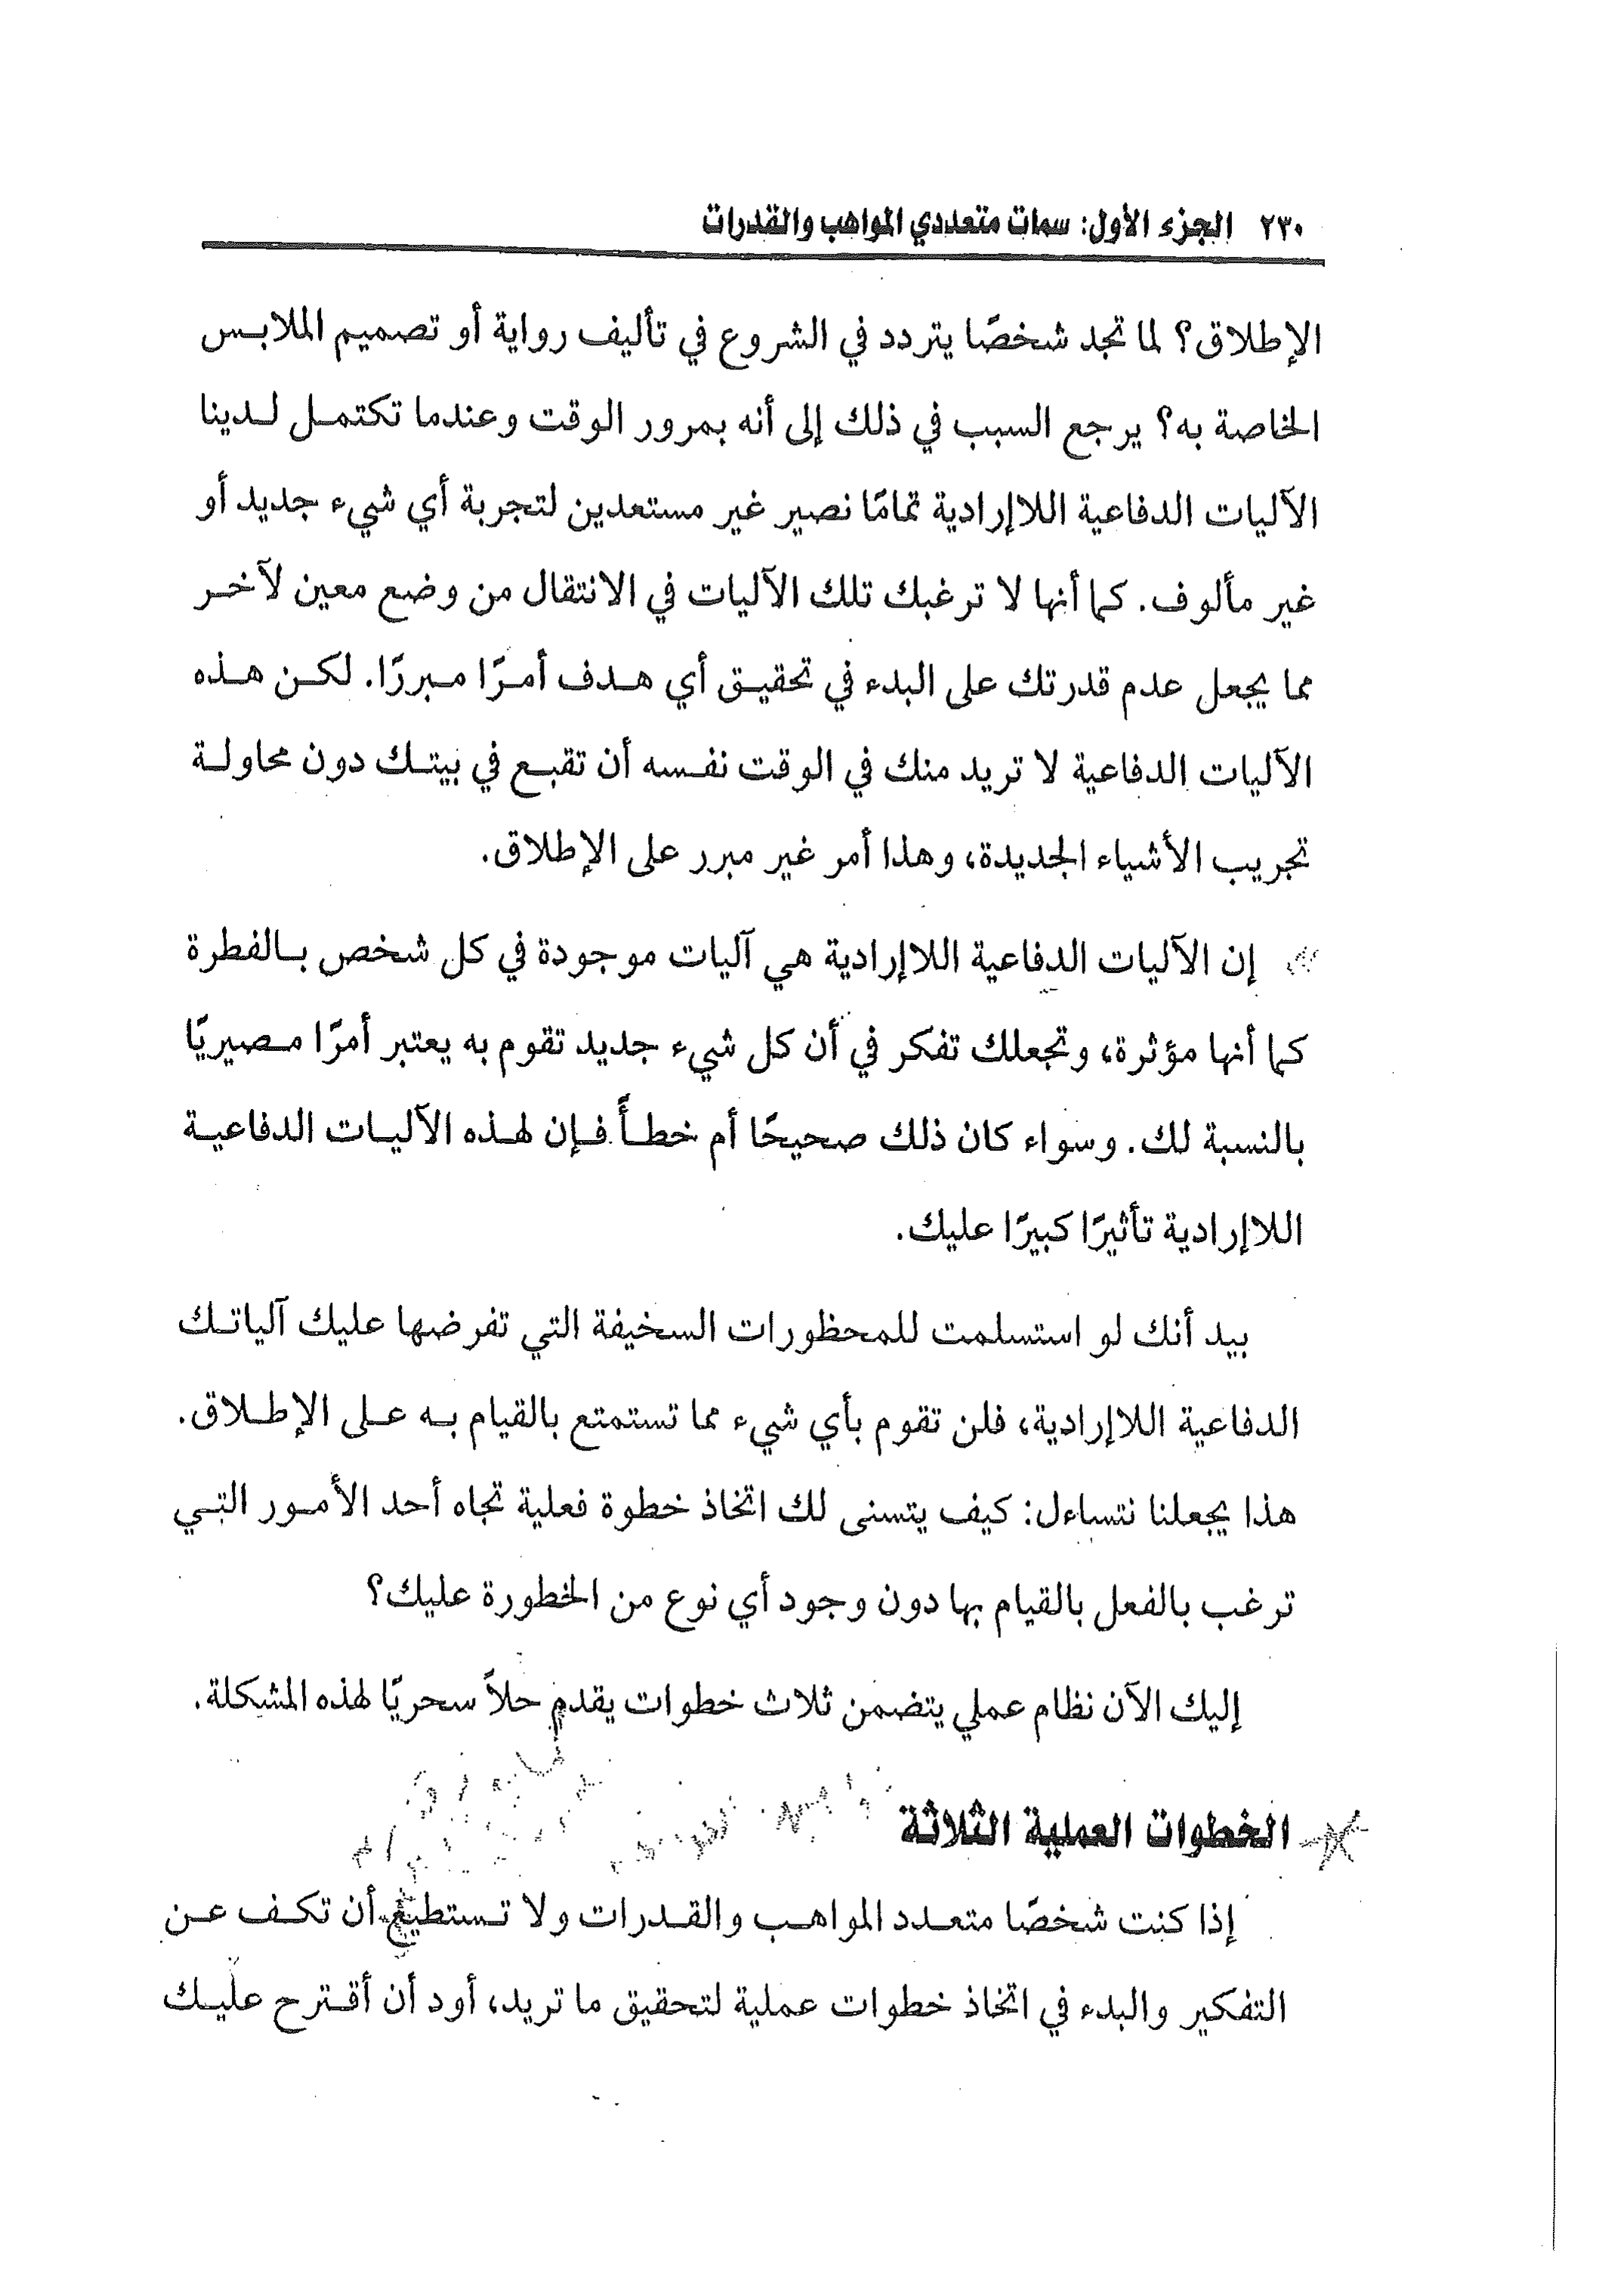 ٢٣٠ الجزء الأول: سمات متعددي المواهب والقدرات
الإطلاق؟ لما تجد شخصًا يتردد في الشروع في تأليف رواية أو تصميم الملابس
الخاصة به؟ يرجع السبب في ذلك إلى أنه بمرور الوقت وعندما تكتمل لدينا
الآليات الدفاعية اللاإرادية تمامًا نصير غير مستعدين لتجربة أي شيء جديد أو
غير مألوف. كما أنها لا ترغبك تلك الآليات في الانتقال من وضع معين لآخر
مما يجعل عدم قدرتك على البدء في تحقيق أي هدف أمرًا مبررًا. لكن هذه
الآليات الدفاعية لا تريد منك في الوقت نفسه أن تقبع في بيتك دون محاولة
تجريب الأشياء الجديدة، وهذا أمر غير مبرر على الإطلاق.
إن الآليات الدفاعية اللاإرادية هي آليات موجودة في كل شخص بالفطرة
كما أنها مؤثرة، وتجعلك تفكر في أن كل شيء جديد تقوم به يعتبر أمرًا مصيريًا
بالنسبة لك. وسواء كان ذلك صحيحًا أم خطأً فإن لهذه الآليات الدفاعية
اللاإرادية تأثيرًا كبيرًا عليك.
بيد أنك لو استسلمت للمحظورات السخيفة التي تفرضها عليك آلياتك
الدفاعية اللاإرادية، فلن تقوم بأي شيء مما تستمتع بالقيام به على الإطلاق.
هذا يجعلنا نتساءل: كيف يتسنى لك اتخاذ خطوة فعلية تجاه أحد الأمور التي
ترغب بالفعل بالقيام بها دون وجود أي نوع من الخطورة عليك؟
إليك الآن نظام عملي يتضمن ثلاث خطوات يقدم حلاً سحريًا لهذه المشكلة.
الخطوات العملية الثلاثة
إذا كنت شخصًا متعدد المواهب والقدرات ولا تستطيع أن تكف عن
التفكير والبدء في اتخاذ خطوات عملية لتحقيق ما تريد، أود أن أقترح عليك